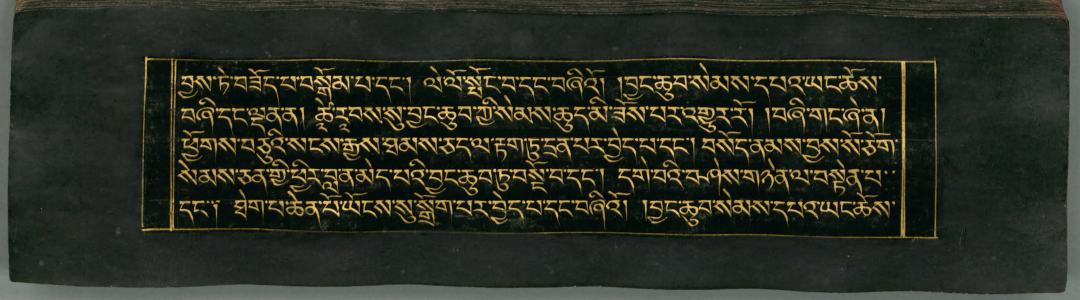 བྱས་ཏེ་བཟོད་པ་བསྒོམ་པ་དང་། ལེ་ལོ་སྤོང་བ་དང་བཞིའོ། །བྱང་ཆུབ་སེམས་དཔའ་ཡང་ཆོས་
བཞི་དང་ལྡན་ན། ཚེ་རབས་སུ་བྱང་ཆུབ་ཀྱི་སེམས་ཆུད་མི་ཟོས་པར་འགྱུར་རོ། །བཞི་གང་ཞེ་ན།
ཕྱོགས་བཅུའི་སངས་རྒྱས་ཐམས་ཅད་ལ་རྟག་ཏུ་དྲན་པར་བྱེད་པ་དང་། བསོད་ནམས་བྱས་སོ་ཅོག་
སེམས་ཅན་གྱི་ཕྱིར་བླ་ན་མེད་པའི་བྱང་ཆུབ་ཏུ་བསྔོ་བ་དང་། དགེ་བའི་བཤེས་གཉེན་ལ་བསྟེན་པ་
དང་། ཐེག་པ་ཆེན་པོ་ཡོངས་སུ་སྒྲོག་པར་བྱེད་པ་དང་བཞིའོ། །བྱང་ཆུབ་སེམས་དཔའ་ཡང་ཆོས་